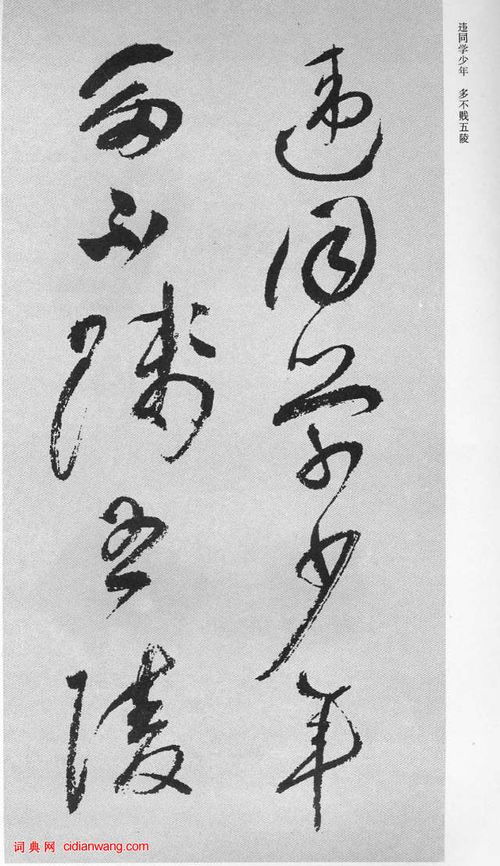 违同学少年 多不贱五陵
違同學少年
多不賤五陵
词典网 cidianwang.com